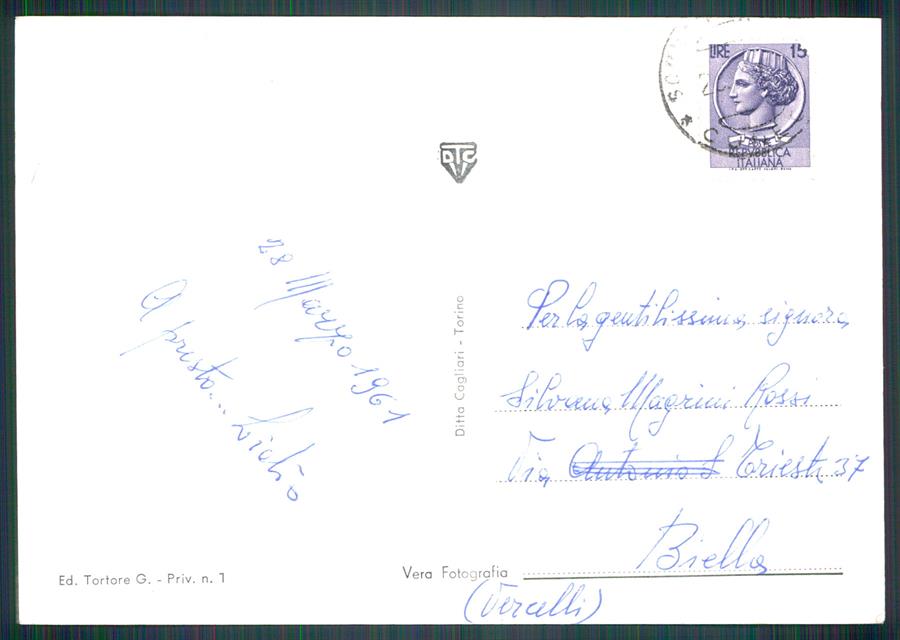 LIRE 15
REPVBBLICA
ITALIANA
DTC
28 Marzo 1961
A presto...
Per la gentilissima signora
Silvana Magrini Rossi
Via Antonio S Trieste 37
Biella
(Vercelli)
Ditta Cagliari - Torino
Ed. Tortore G. - Priv. n. 1
Vera Fotografia